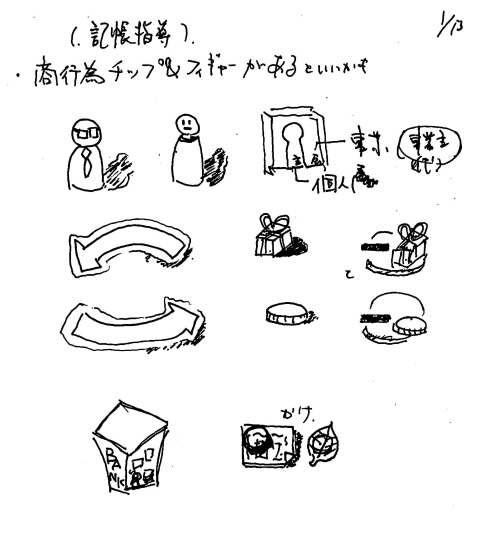 1/13
(記帳指導).
・商行為チップ&フィギャーがあるといいかも
事業、
事業主
個人
と
かけ.
BANK